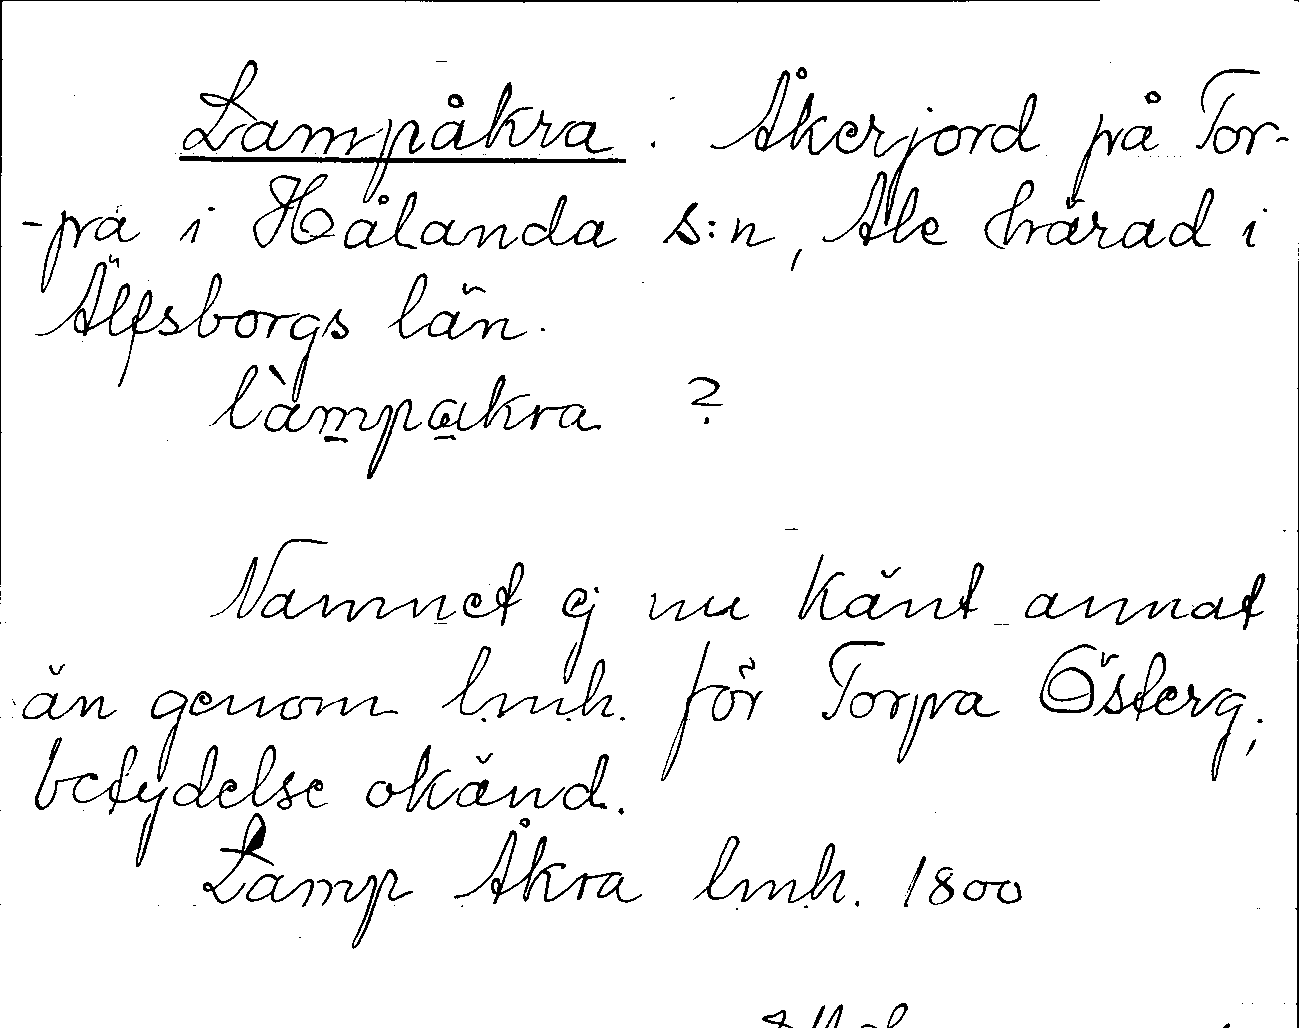 Lampåkra. Åkerjord på Tor-
-pra i Hålanda s:n, Ale härad i
Älfsborgs län.
làmpakra ?
Namnet ej nu känt annat
än genom lmh. för Torpra Österg;
betydelse okänd.
Lamp Åkra lmh. 1800